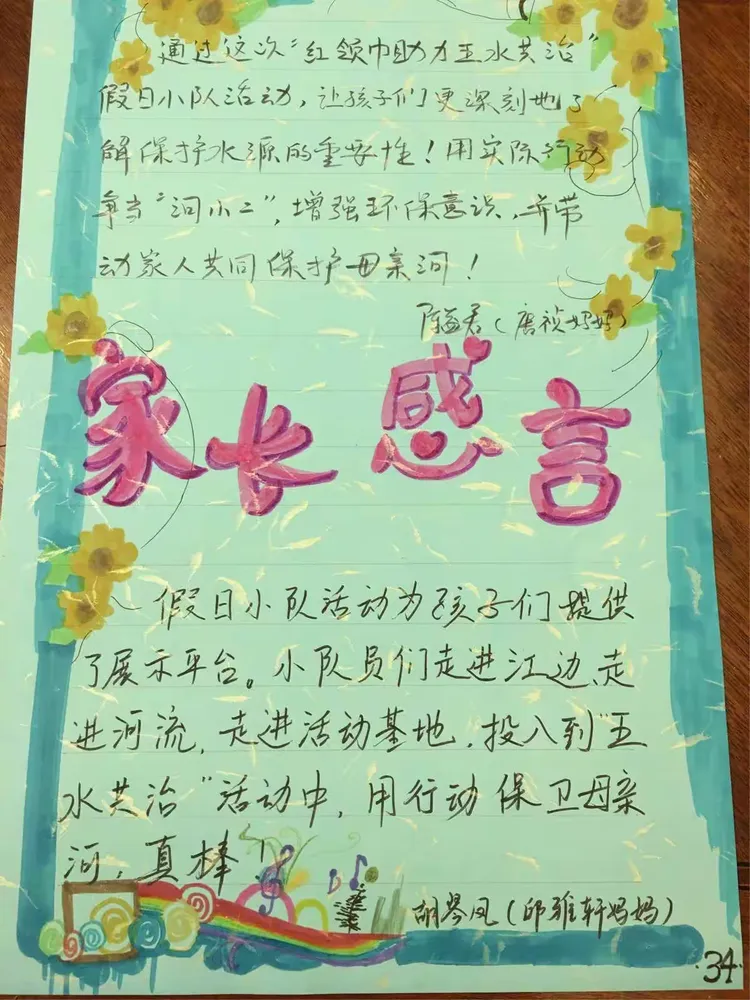 通过这次“红领巾助力五水共治”
假日小队活动，让孩子们更深刻地了
解保护水源的重要性！用实际行动
争当“河小二”，增强环保意识，并带
动家人共同保护母亲河！
陈益君（唐祯妈妈）
家长感言
假日小队活动为孩子们提供
了展示平台。小队员们走进江边、走
进河流，走进活动基地，投入到“五
水共治”活动中，用行动保卫母亲
河，真棒！
胡琴凤（邱雅轩妈妈）
·34·